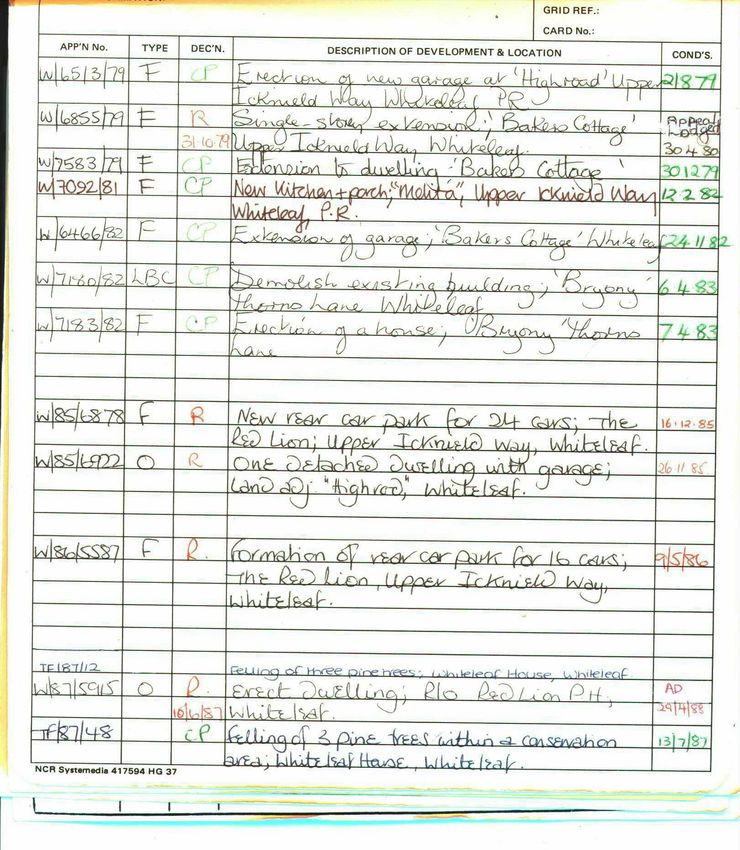 GRID REF.:
CARD No.:
APP'N No. TYPE DEC'N. DESCRIPTION OF DEVELOPMENT & LOCATION COND'S.
W/6513/79 F CP Erection of new garage at 'Highroad' Upper 21 8 79
Icknield Way Whiteleaf PR
W/6855/79 F R Single-storey extension; 'Bakers Cottage' Appeal Lodged
31·10·79 Upper Icknield Way Whiteleaf. 30 4 80
W/7583/79 F CP Extension to dwelling 'Bakers Cottage' 30 12 79
W/7092/81 F CP New Kitchen + porch; "Melita", Upper Icknield Way 12 2 82
Whiteleaf, P.R.
W/6466/82 F CP Extension of garage; 'Bakers Cottage' Whiteleaf 24 11 82
W/7180/82 LBC CP Demolish existing building; 'Bryony' 6 4 83
Thorns Lane Whiteleaf
W/7183/82 F CP Erection of a house; 'Bryony' Thorns 7 4 83
Lane
W/85/6878 F R New rear car park for 24 cars; The 16·12·85
Red Lion; Upper Icknield Way, Whiteleaf.
W/85/6922 O R One detached dwelling with garage; 26 11 85
Land adj "Highrod," Whiteleaf.
W/86/5587 F R. Formation of rear car park for 16 cars; 9/5/86
The Red Lion, Upper Icknield Way,
Whiteleaf.
TF/87/12 Felling of three pine trees; Whiteleaf House, Whiteleaf
W/87/5915 O R. Erect dwelling; R/O Red Lion P.H, AD
10/6/87 Whiteleaf. 29/4/88
TF/87/48 CP Felling of 3 pine trees within a conservation 13/7/87
area; Whiteleaf House, Whiteleaf.
NCR Systemedia 417594 HG 37